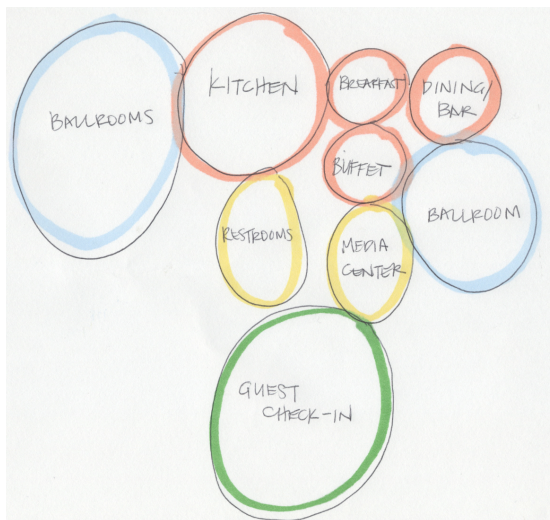 BALLROOMS
KITCHEN
BREAKFAST
DINING/
BAR
BUFFET
BALLROOM
RESTROOMS
MEDIA
CENTER
GUEST
CHECK-IN